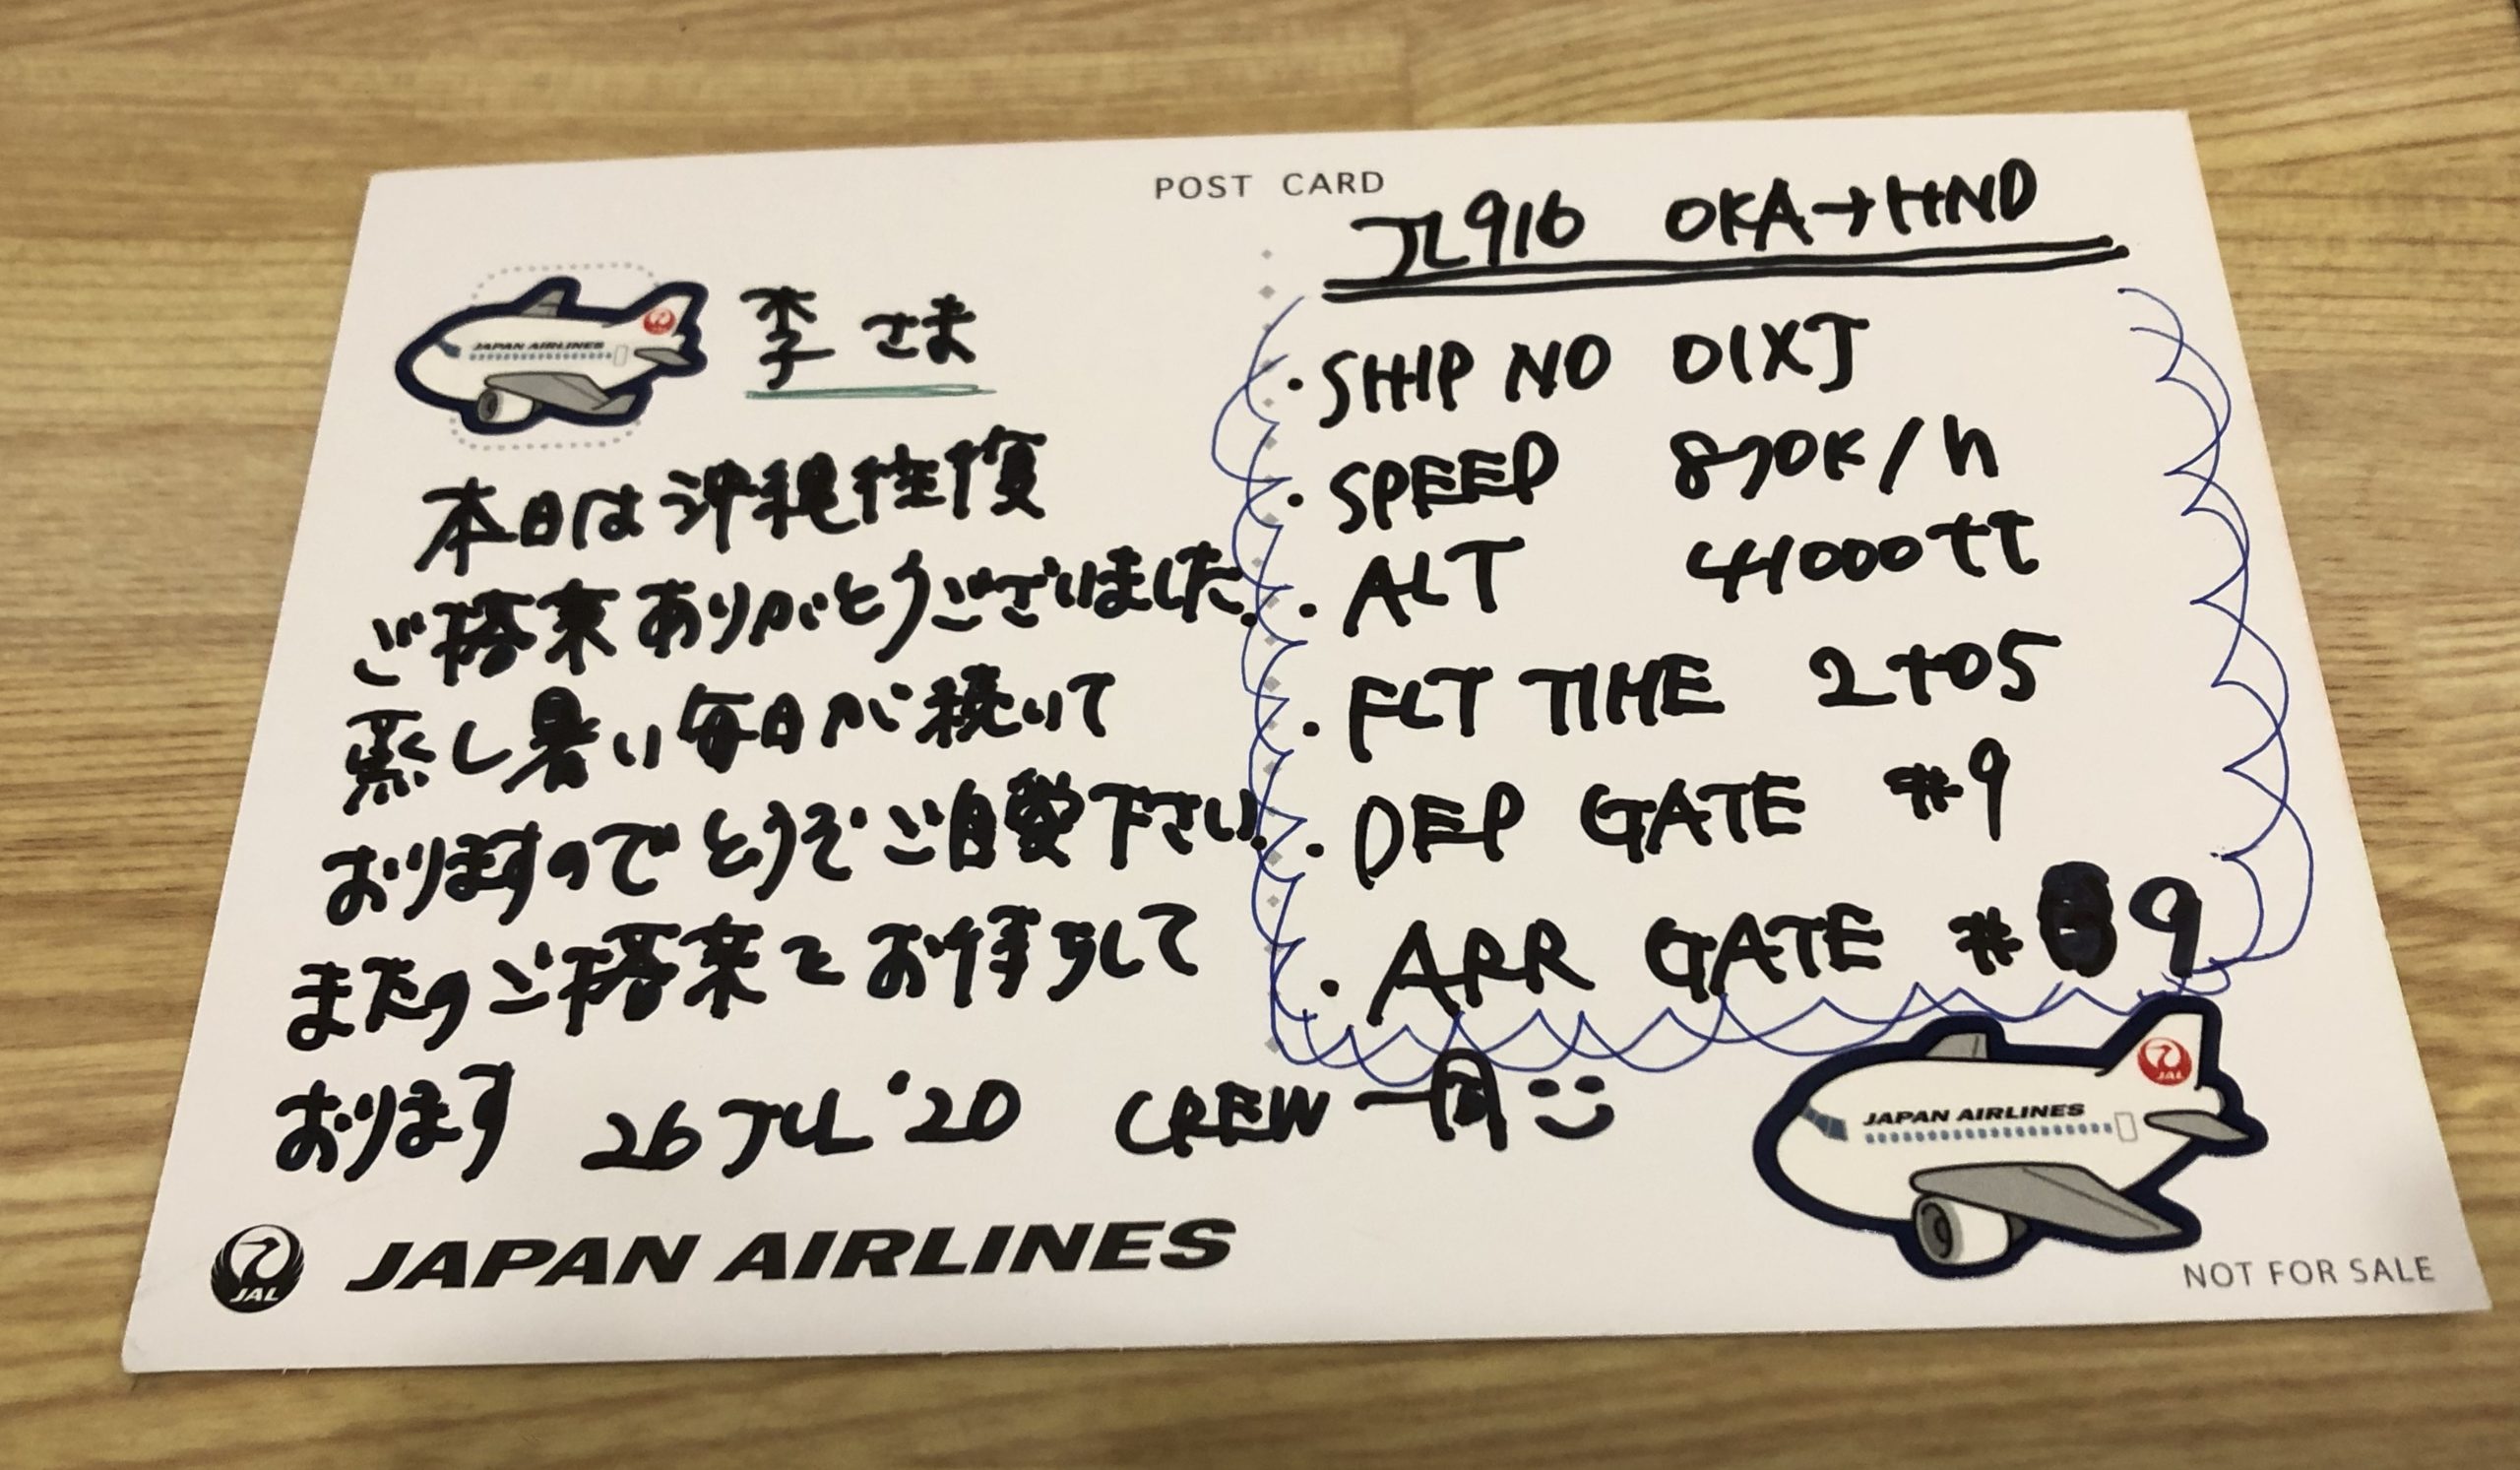 POST CARD
JAPAN AIRLINES
李さま
本日は沖縄往復
ご搭乗ありがとうございました。
蒸し暑い毎日が続いて
おりますのでどうぞご自愛下さい。
またのご搭乗をお待ちして
おります 26 JUL '20 CREW一同
JL916 OKA→HND
・SHIP NO 01XJ
・SPEED 870K/h
・ALT 41000ft
・FLT TIME 2+05
・DEP GATE #9
・ARR GATE #9
JAL JAPAN AIRLINES
JAL
JAPAN AIRLINES
NOT FOR SALE